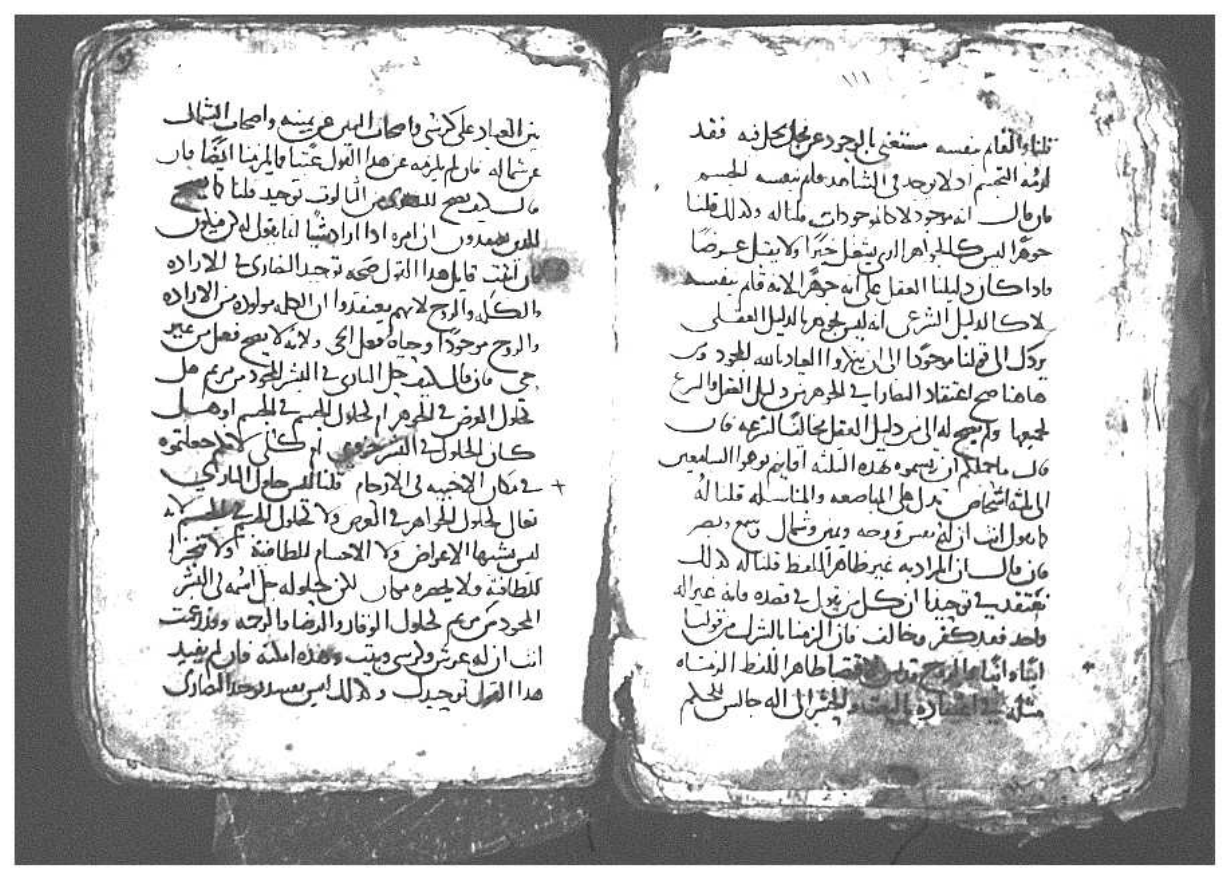 ١١١
قلنا والقايم بنفسه مستغنى بالوجود عن محل يحل فيه فقد
لزمه التجسم اذ لا توجد في الشاهد قايم بنفسه الجسم
فان قال انه موجود لا كالموجودات قلنا له وكذلك قلنا
جوهرا ليس كالجواهر الذي يشغل حيزا ولا يقبل عرضا
فاذا كان دليلنا العقل على انه جوهرا لانه قايم بنفسه
لا كالدليل الشرعي انه ليس بجوهر بالدليل العقلي
الى قولنا موجودا الى ان العباد بالله الجحود
هاهنا صح اعتقاد النصارا في الجوهر من دليل العقل والشرع
جميعها ولم يصح له الى من دليل العقل مخالفا لشرعه فان
قال ما حملكم ان تسموه بهذه الثلثه اقانيم توهوا السامعين
الى ثلثه اشخاص تدل على المباضعه والمناسله قلنا له
ما تقول انت ان لله نفس ووجه ويمين وشمال وسمع وبصر
فان قال ان المراد به غير ظاهر اللفظ قلنا له كذلك
نعتقد في توحيدنا ان كل من يقول في قصده فانه غير اله
واحد فقد كفر وخالف فان الزمنا بالشرك من قولنا
ظاهر اللفظ الزمناه
مثله في اله جالس للحكم
بين العباد على كرسي واصحاب اليمين عن يمينه واصحاب الشمال
عن شماله فان لم يلزمه عن هذا القول عتبا فالم يلزمنا ايضا فان
قال كيف يصح للنصارى من الثالوث توحيد قلنا كما يصح
للذين يعتقدون ان امره اذا اراد شيا انما يقول له كن فيكون
فان اثبت قايل هذا القول صحه توحيد النصارى في الاراده
والكلمه والروح لانهم يعتقدوا ان الكلمه مولوده من الاراده
والروح موجودا وحياه فعل الحي ولانه لا يصح فعل من غير
حي فان قال كيف حل الباري في البشر الماخوذ من مريم هل
كحلول العرض في الجوهر ام كحلول الجسم في الجسم او هل
كان الحلول في البشر جزوي ام كلي فلم جعلتموه
في مكان الاجنه في الارحام قلنا ليس حلول الباري
تعالى كحلول الجواهر في العرض ولا كحلول الجسم في الجسم لانه
ليس يشبها الاعراض ولا الاجسام للطافته ولا يتجزا
للطافته ولا يحصره مكان لكن حلوله حل اسمه في البشر
الماخوذ من مريم كحلول الوقار والرضا والرحمه وقد زعمت
انت ان له عرش وكرسي وبيت وهذه امكنه فان لم يفيد
هذا القول توحيدك وكذلك ليس يفسد توحيد النصارى